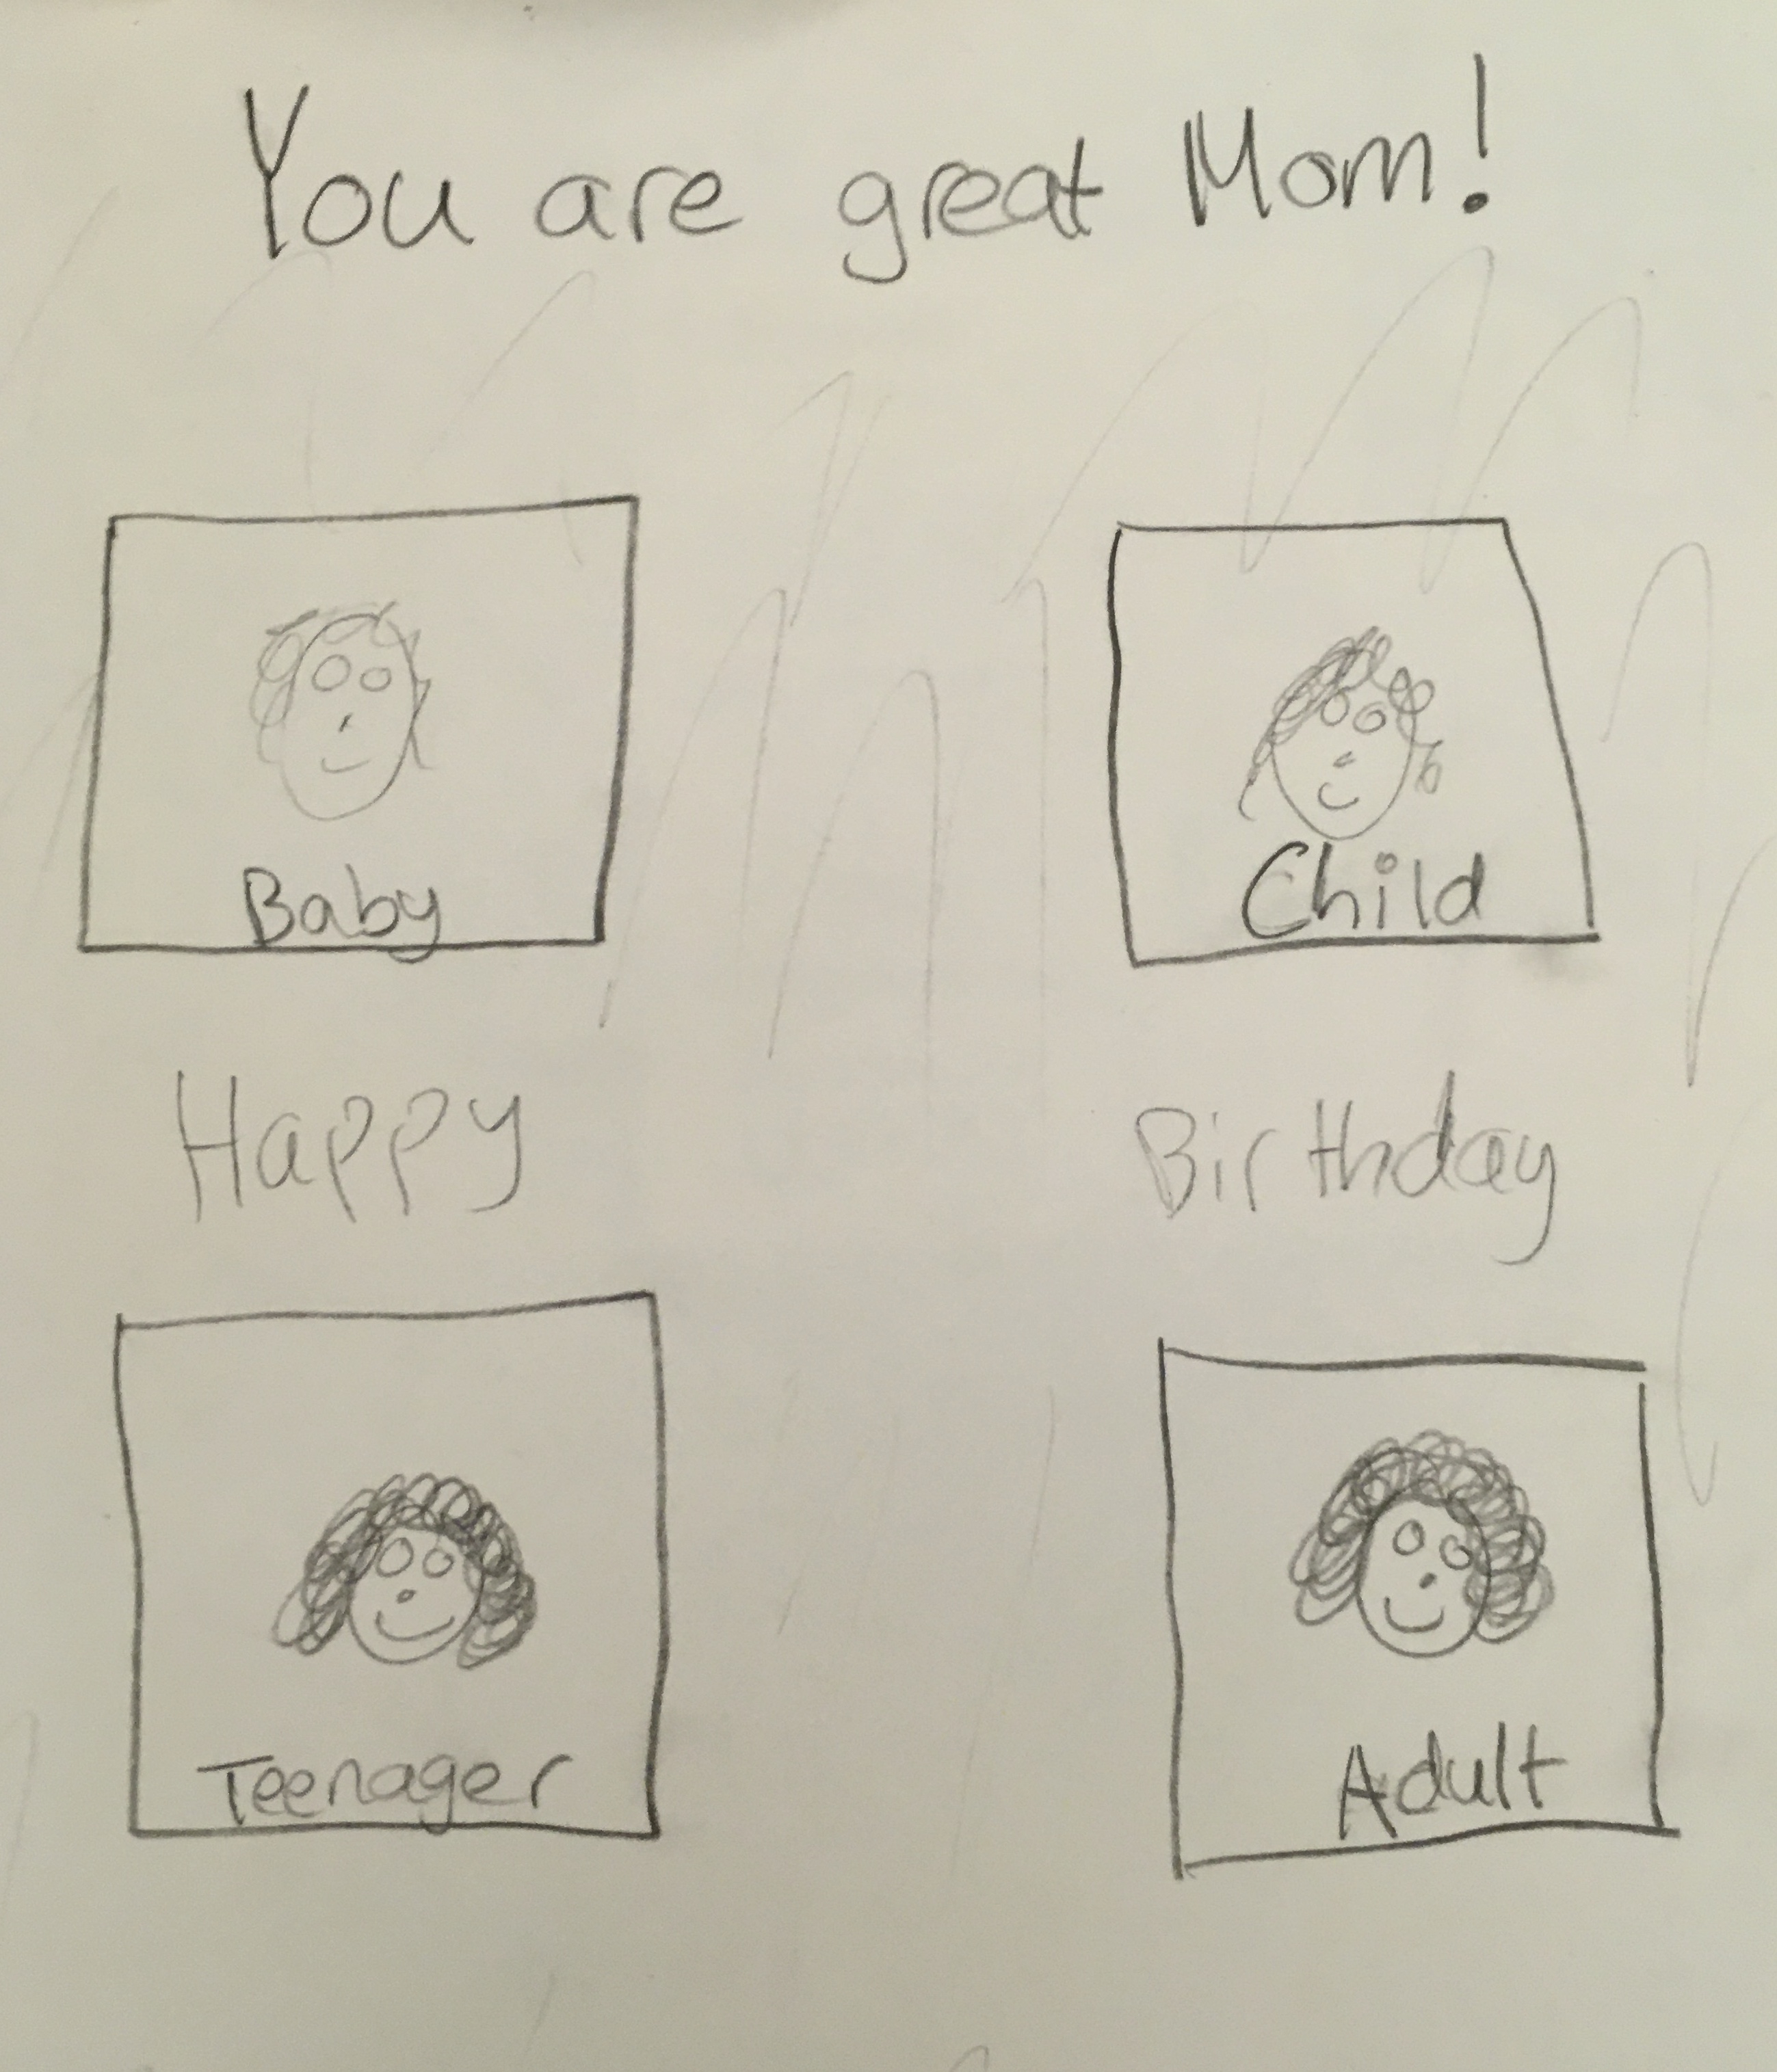 You are great Mom!
Baby Child
Happy Birthday
Teenager Adult